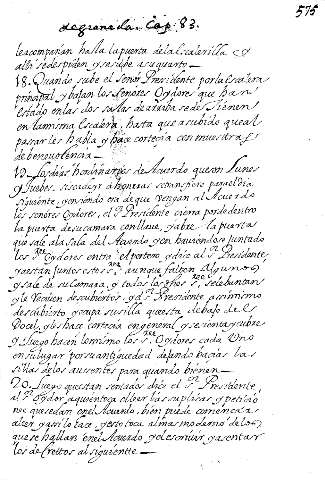 575
de granada. Cap. 83.
le acompañan halla la puerta de la escalerilla y
alli se despiden y se sube a su quarto.
18. Quando sube el señor Presidente por la escalera
principal y bajan los señores Oydores que han
estado en las dos salas de arriba se detienen
en la misma escalera, hasta que a subido que al
passar les habla y hace cortesia con muestras
de benevolencia.
19. Los dias hordinarios de Acuerdo que son Lunes
y Jueves,
siguiente, y en siendo ora de que vengan al Acuerdo
los señores Oydores, el s.r Presidente cierra por de dentro
la puerta de su camara con llave, y abre la puerta
que sale a la sala del Acuerdo, y en haviendose juntado
los s.res Oydores entra el portero, y dice al s.r Presidente,
ya estan juntos estos s.res, aunque falten algunos
y sale de su camara, y todos los dhos s.res se lebantan
y le reciven descubiertos y el s.r Presidente assimismo
descubierto, y ocupa su silla que esta debajo de el
Docel, y les hace cortesia en general y se sienta y cubre
y luego hacen lo mismo los s.res Oydores cada Uno
en su lugar por su antiguedad dejando bacias las
sillas de los ausentes para quando bienen
20. Luego que estan sentados dice el s.r Presidente
al s.r Oydor a quien toca el leer las suplicas y peticio
nes que se dan en el Acuerdo, bien puede comenzar a
leer y assi lo hace, y esto toca al mas moderno de los
que se hallan en el Acuerdo y el escrivir y asentar
los decrettos al siguientte